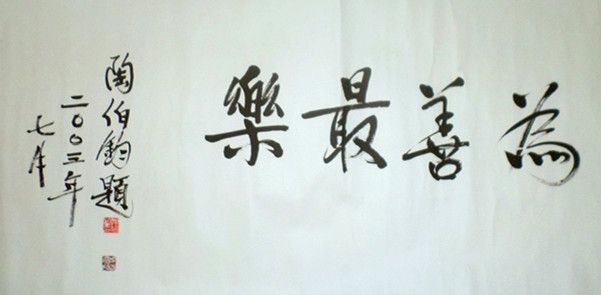 為善最樂
陶伯鈞題
二〇〇三年
七月